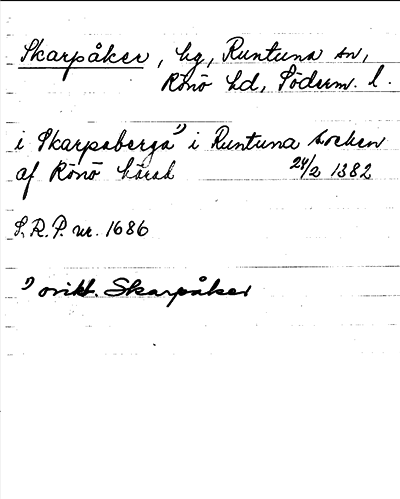 Skarpåker, hg, Runtuna sn,
Rönö hd, Söderm. l.
i Skarpaberga¹⁾ i Runtuna socken
af Rönö härad 24/2 1382
S.R.P. nr. 1686
¹⁾ orikt. Skarpåker